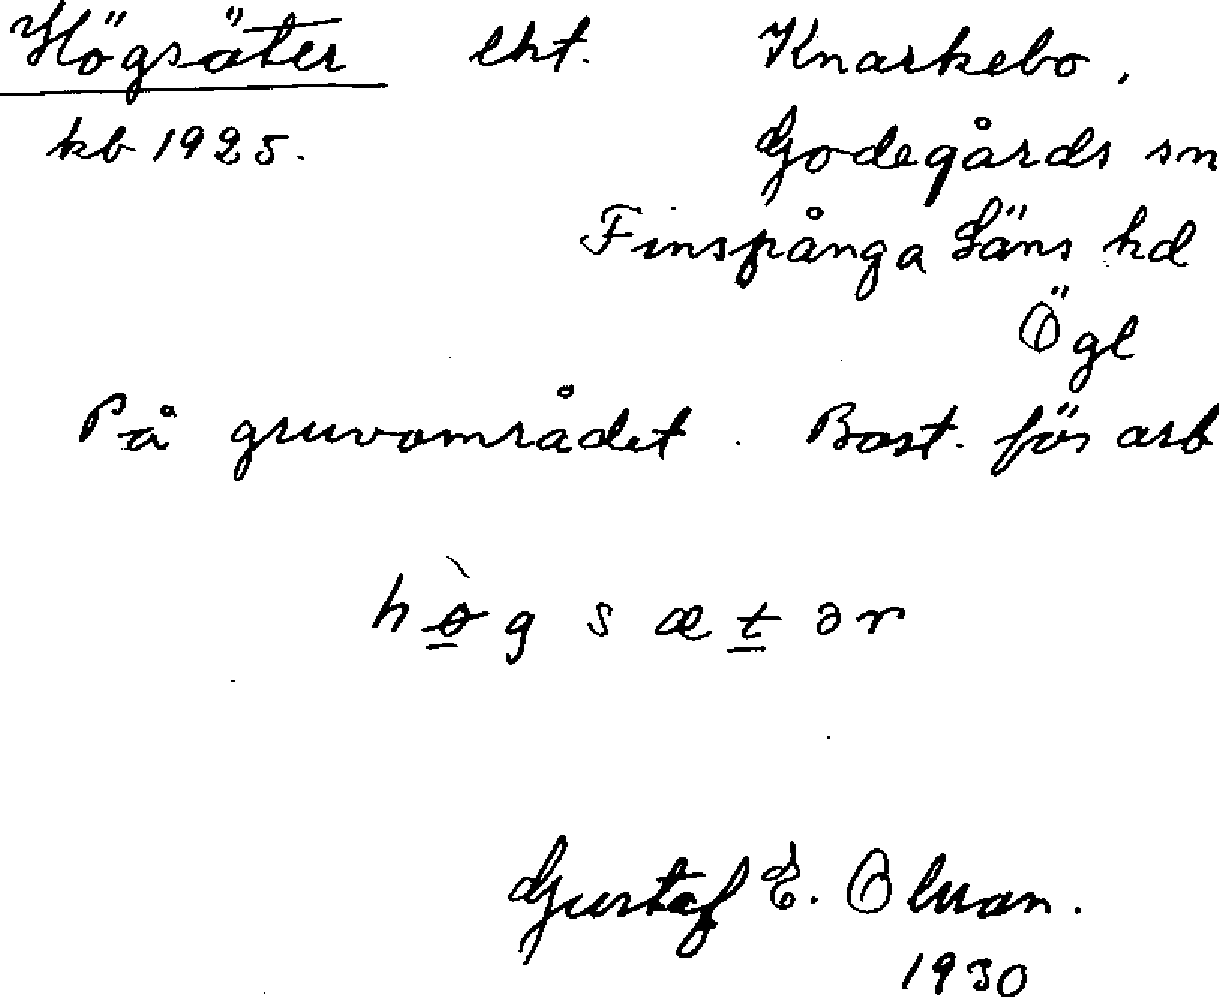 Högsäter lht. Knarkebo,
kb 1925. Godegårds sn
Finspånga Läns hd
Ögl
På gruvområdet. Bost. för arb
hø̀gsætər
Gustaf E. Olsson.
1930